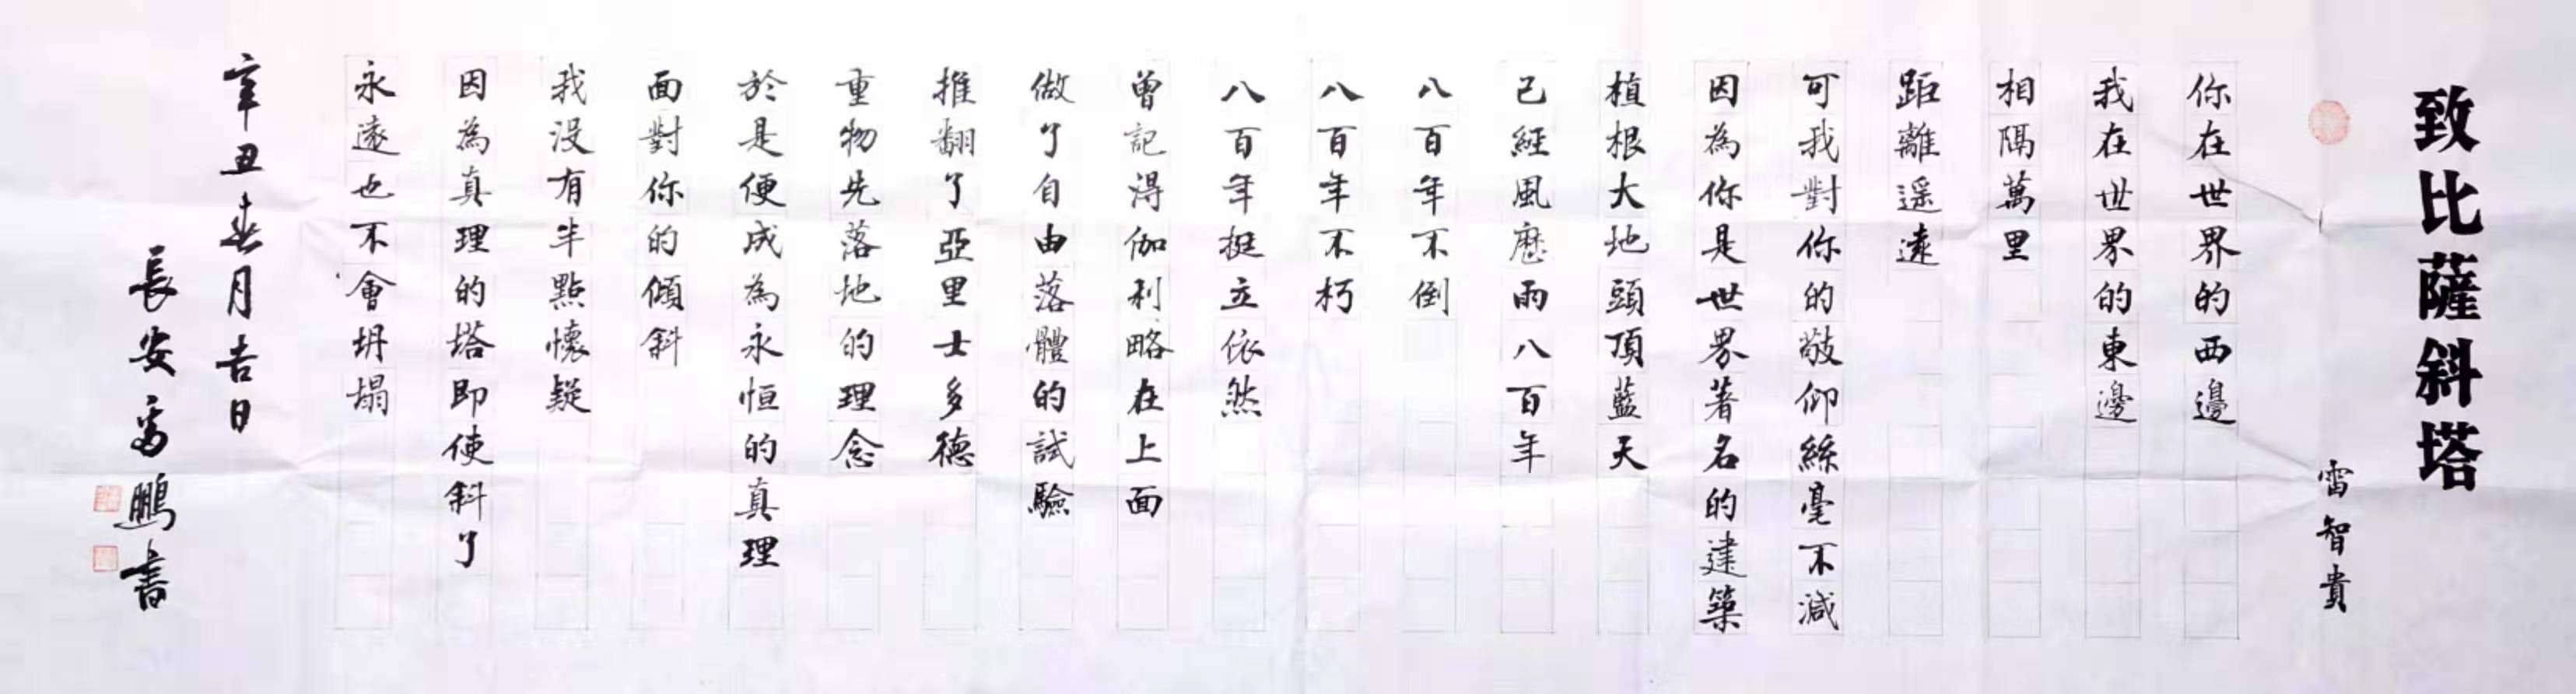 致比薩斜塔
雷智貴
你在世界的西邊
我在世界的東邊
相隔萬里
距離遥遠
可我對你的敬仰絲毫不減
因為你是世界著名的建築
植根大地頭頂藍天
已經風歷雨八百年
八百年不倒
八百年不朽
八百年挺立依然
曾記得伽利略在上面
做了自由落體的試驗
推翻了亞里士多德
重物先落地的理念
於是便成為永恒的真理
面對你的傾斜
我没有半點懷疑
因為真理的塔即使斜了
永遠也不會坍塌
辛丑春月吉日
長安 鵬書